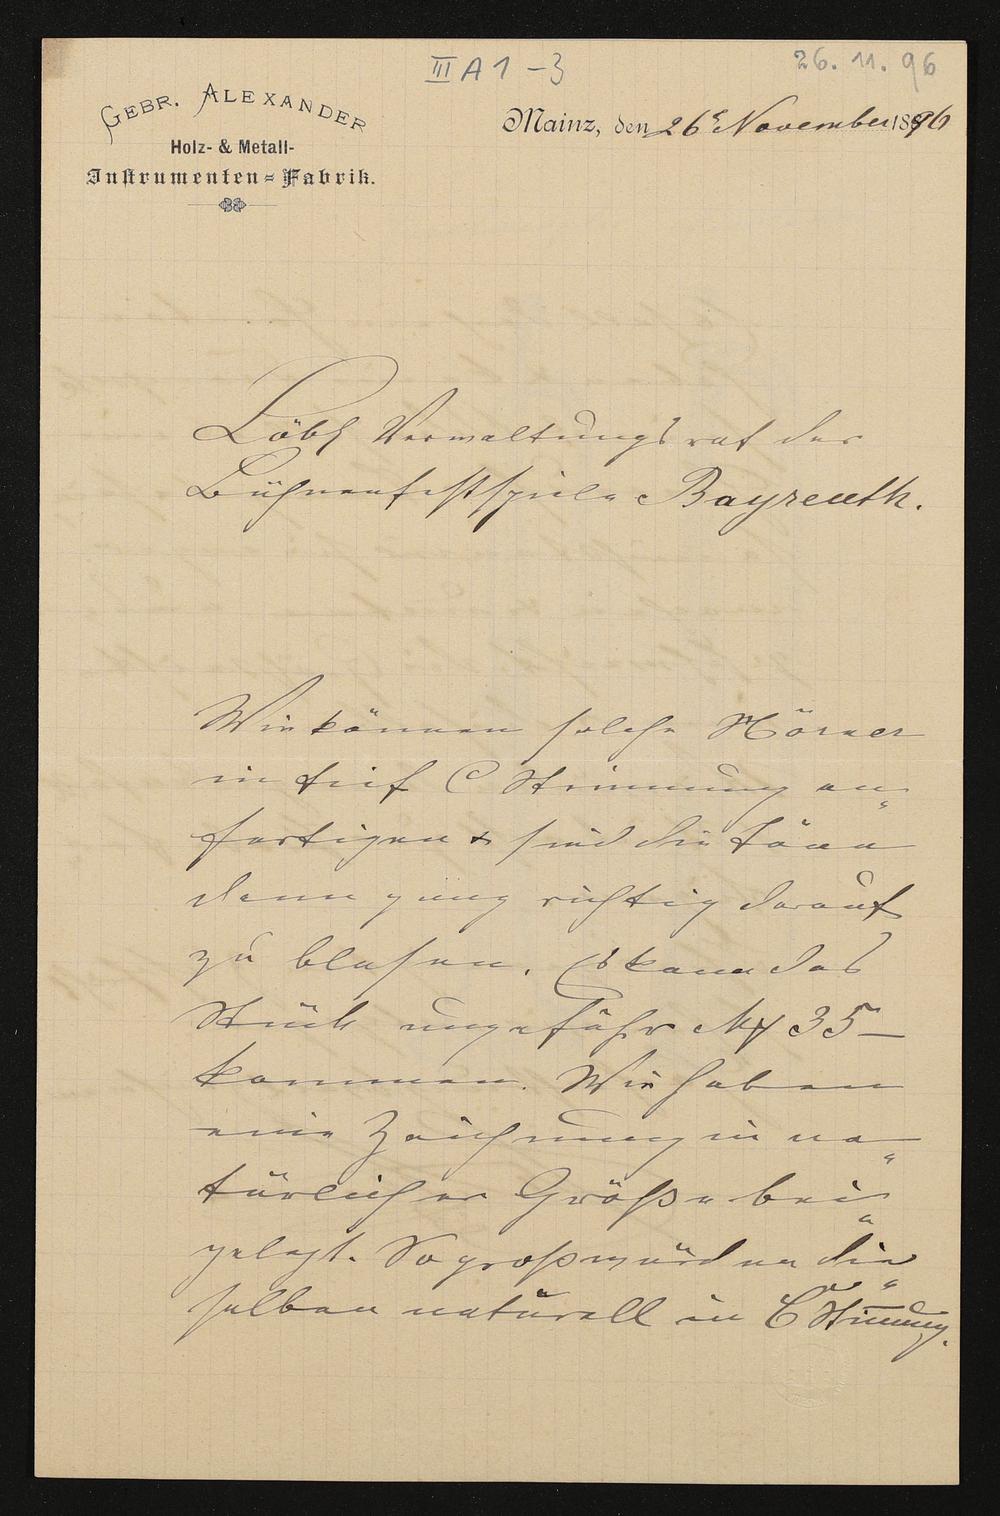 III A 1 - 3
26. 11. 96
GEBR. ALEXANDER
Holz- & Metall-
Instrumenten-Fabrik.
Mainz, den 26t November 1896
Löbl Verwaltungsrat der
Bühnenfestspiele Bayreuth.
Wir können solche Hörner
in tief C Stimmung an-
fertigen & sind die Töne
dann ganz richtig darauf
zu blasen. Es kann das
Stück ungefähr Mk 35 –
kommen. Wir haben
eine Zeichnung in na-
türlicher Größe bei-
gelegt. So groß würden die-
selben naturell in C Stimmung.